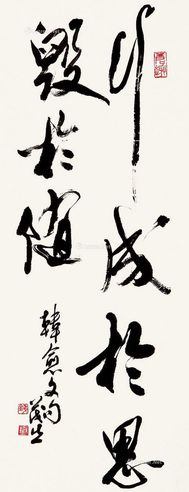 行成於思
毀於随
韓愈文